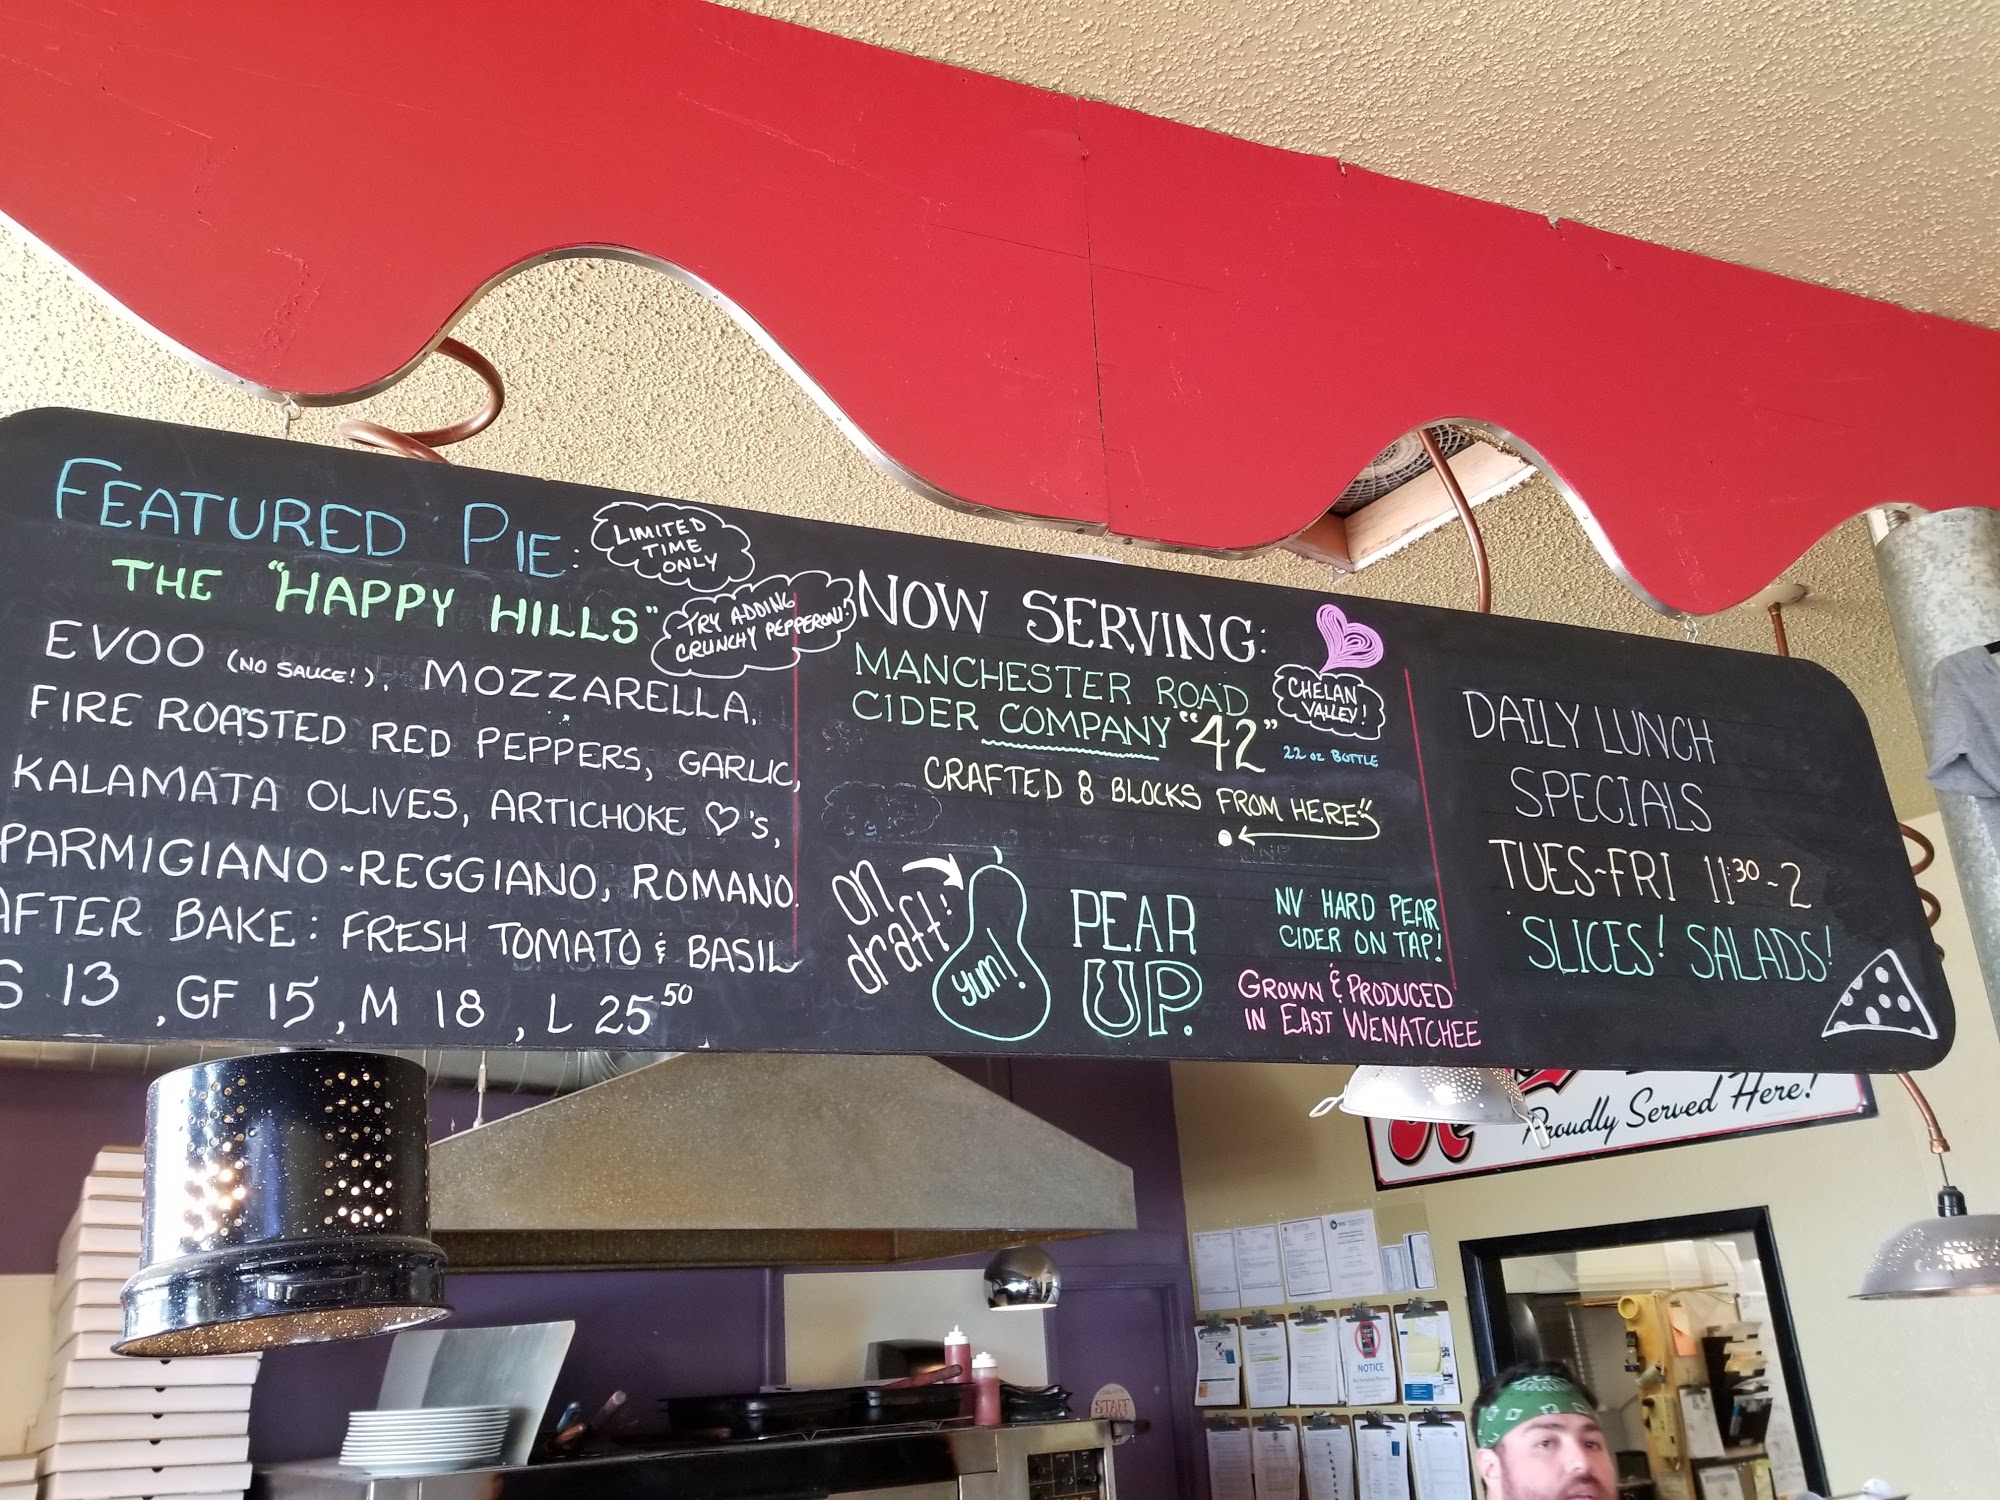 FEATURED PIE:
LIMITED
TIME
ONLY
THE "HAPPY HILLS"
TRY ADDING
CRUNCHY PEPPERONI!
EVOO (NO SAUCE!), MOZZARELLA,
FIRE ROASTED RED PEPPERS, GARLIC,
KALAMATA OLIVES, ARTICHOKE ♡'S,
PARMIGIANO~REGGIANO, ROMANO.
AFTER BAKE: FRESH TOMATO & BASIL
S 13, GF 15, M 18, L 25.50
NOW SERVING:
MANCHESTER ROAD
CIDER COMPANY "42"
CHELAN
VALLEY!
22 oz BOTTLE
CRAFTED 8 BLOCKS FROM HERE!!
on
draft!
yum!
PEAR
UP.
NV HARD PEAR
CIDER ON TAP!
GROWN & PRODUCED
IN EAST WENATCHEE
DAILY LUNCH
SPECIALS
TUES~FRI 11:30~2
SLICES! SALADS!
Proudly Served Here!
NOTICE
STAFF